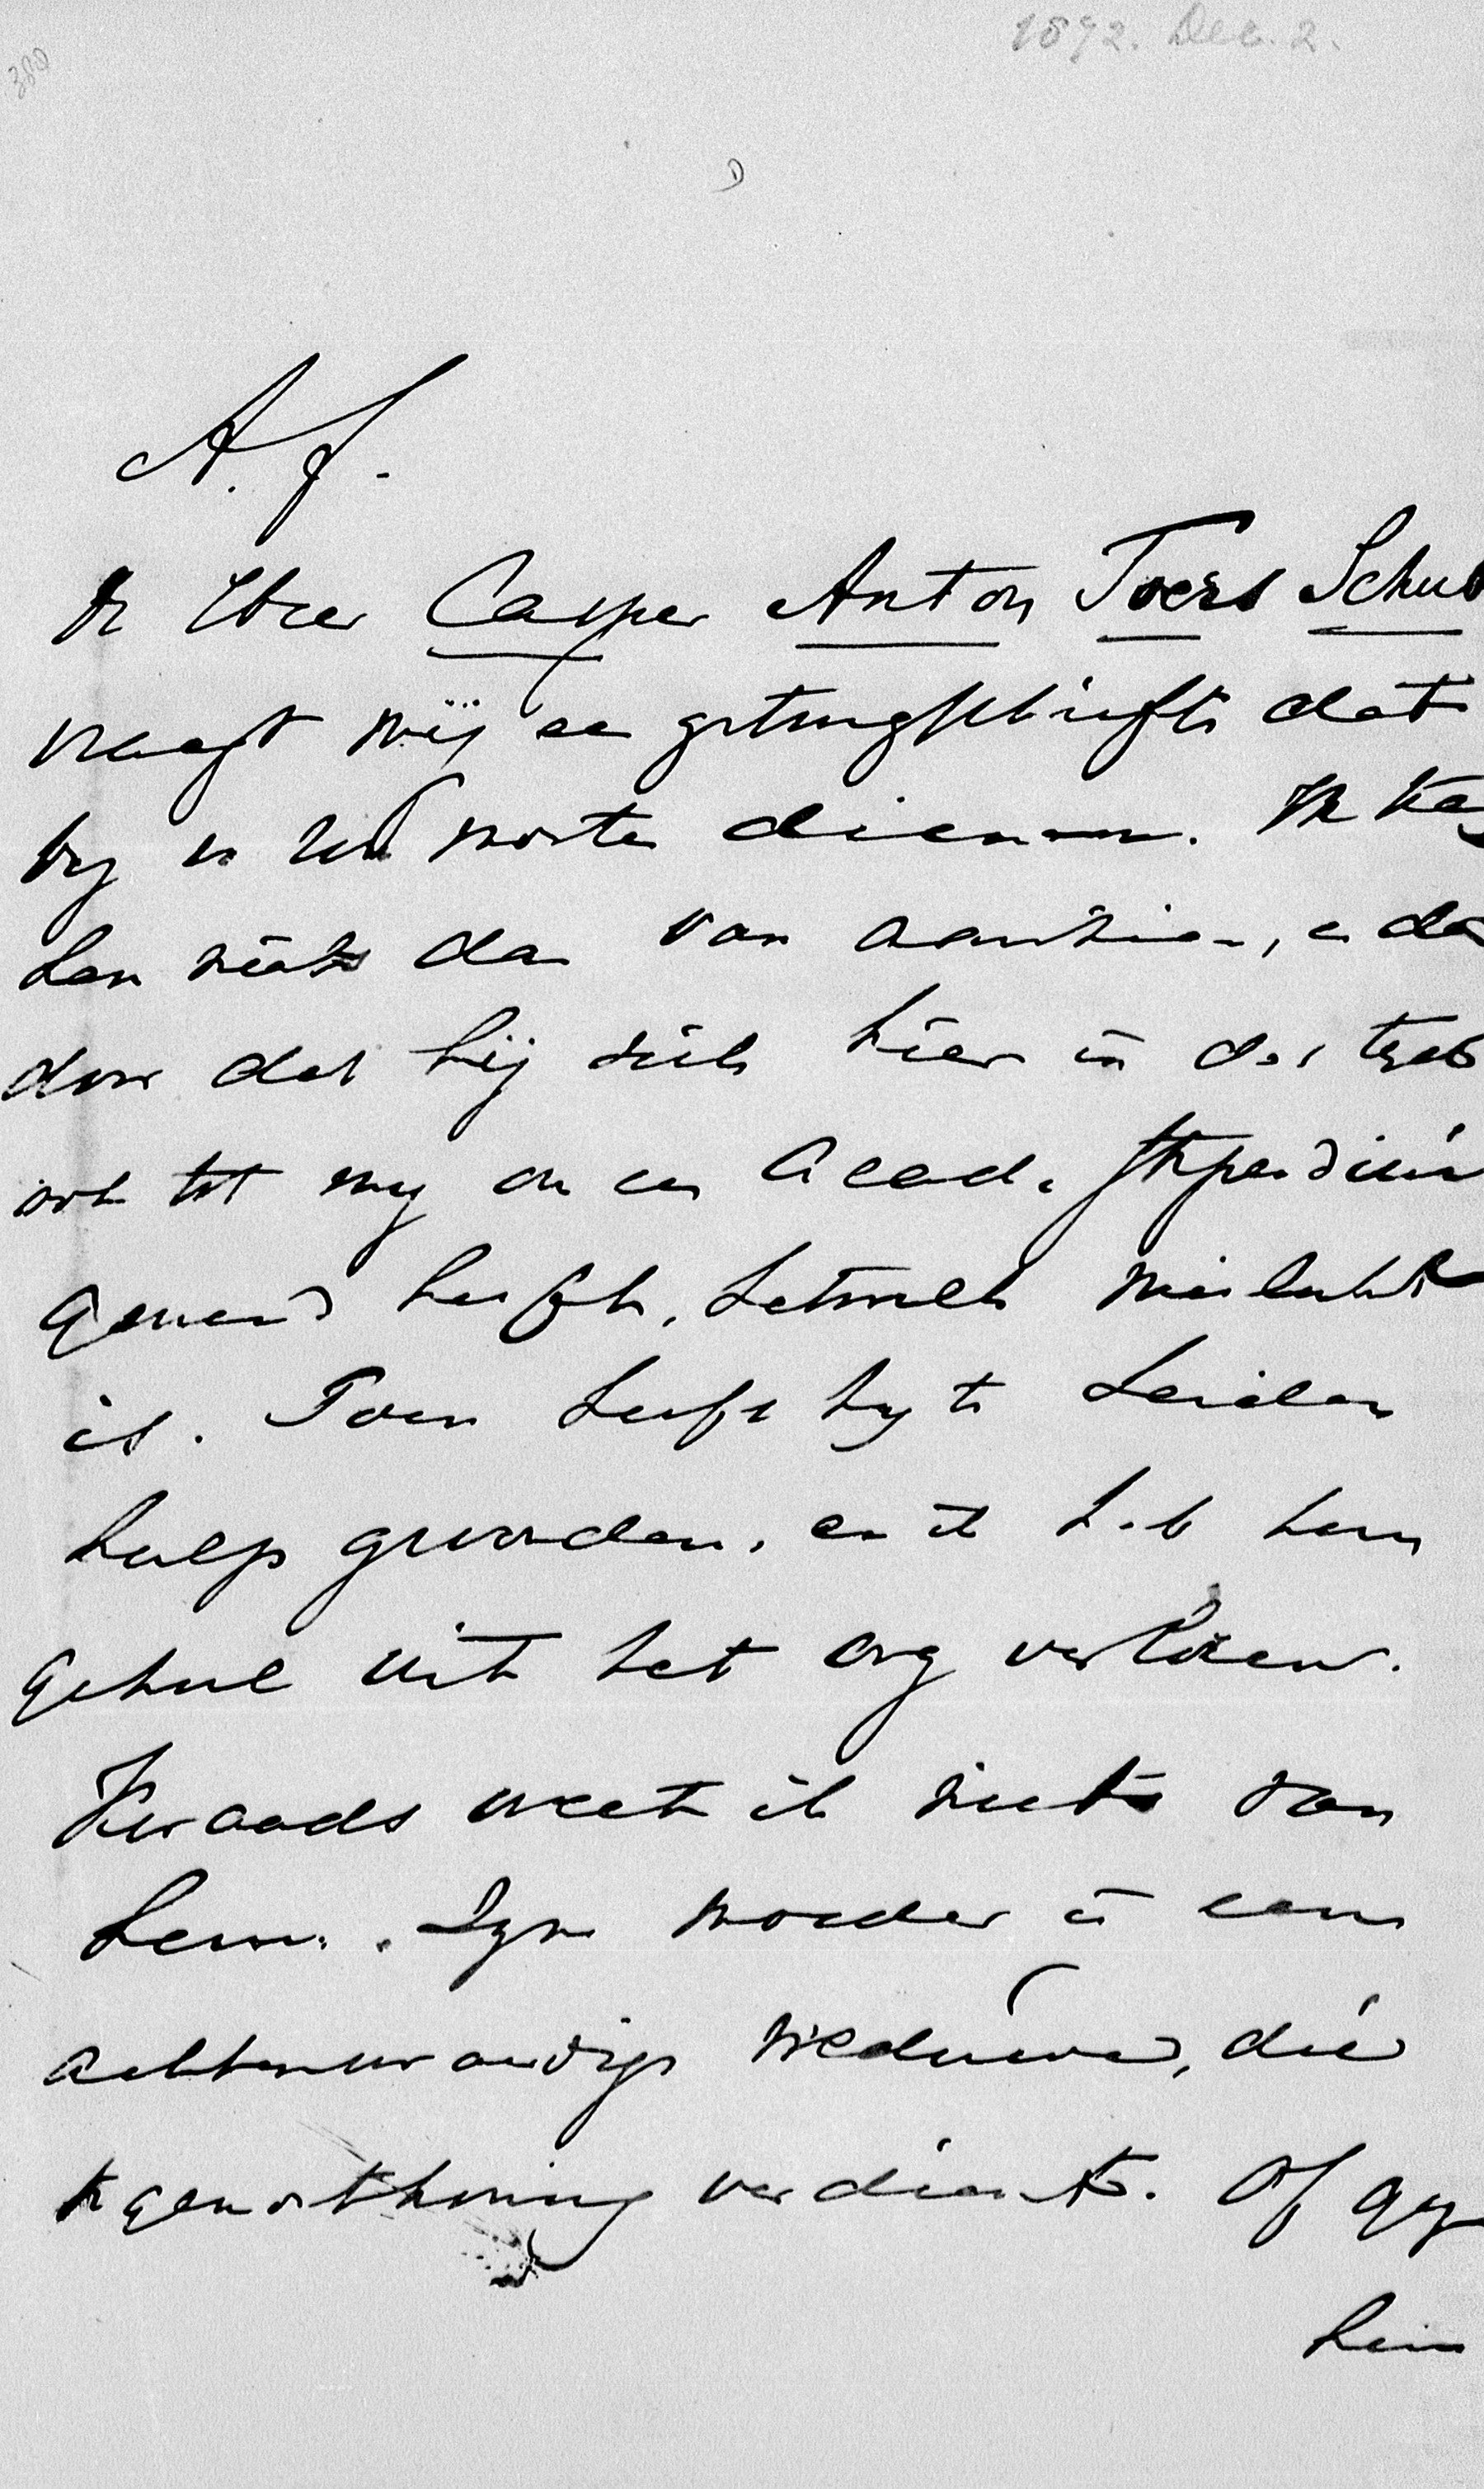 380
1892. Dec. 2.
A. f.
De Heer Casper Anton Toers Schub
vraagt mij een getuigschrift dat
hij u moest dienen. Ik ken
hem niets dan van aanzien, en da
door dat hij zich hier in der tyd
ook tot my om een Acad. stipendium
gewend heeft, hetwelk mislukt
is. Toen heeft hy te Leiden
hulp gevonden, en ik heb hem
geheel uit het oog verloren.
Kwaads weet ik niets van
hem. Zyn moeder is eene
achtenswaardige weduwe, die
tegemoetkoming verdient. Of gy
hem